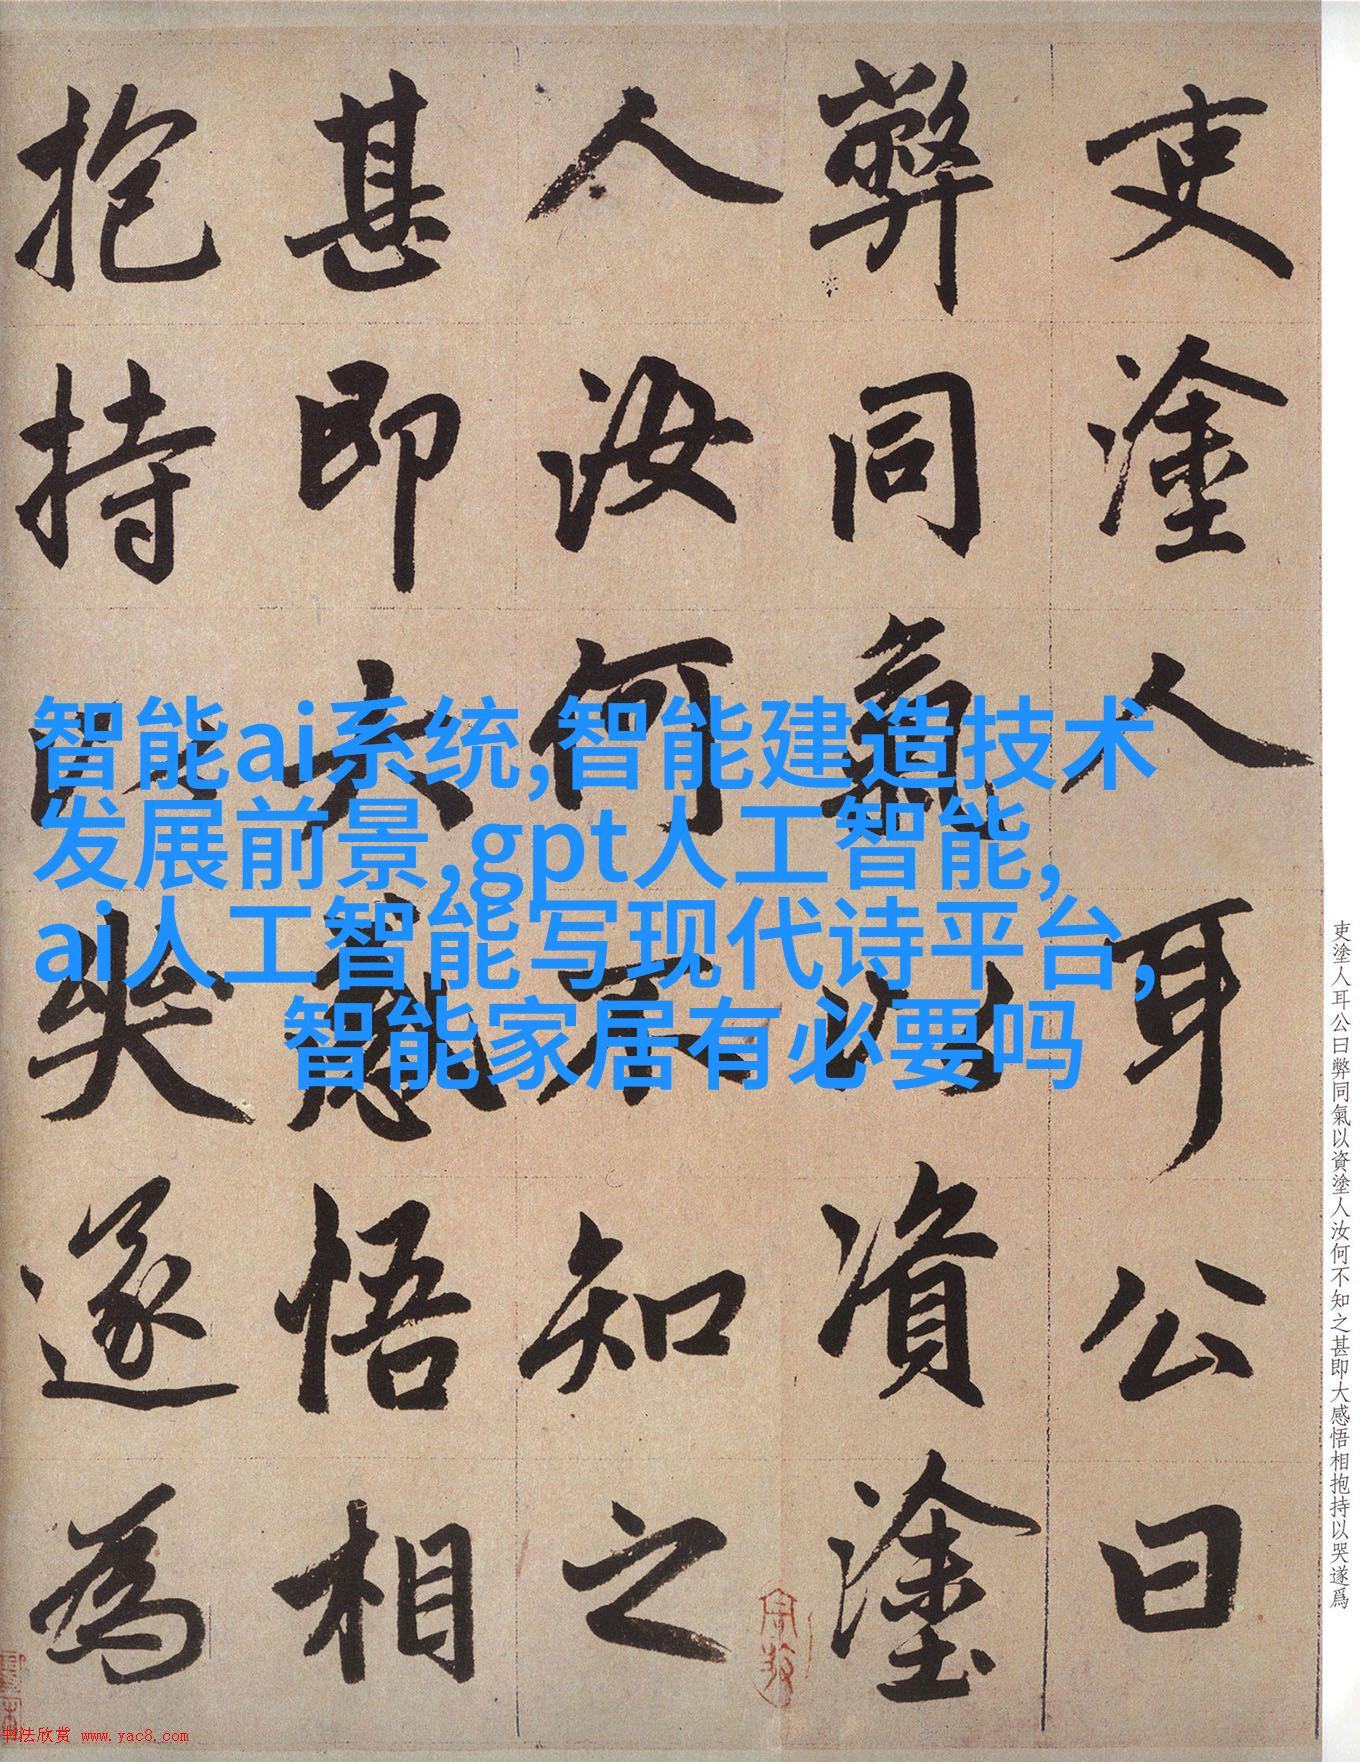 吏塗人耳公曰
弊同氣以資塗
人汝何不知之
甚即大感悟相
抱持以哭遂為
智能ai系统,智能建造技术
发展前景,gpt人工智能,
ai人工智能写现代诗平台,
智能家居有必要吗
吏塗人耳公曰弊同氣以資塗人汝何不知之甚即大感悟相抱持以哭遂爲
书法欣赏 www.yac8.com